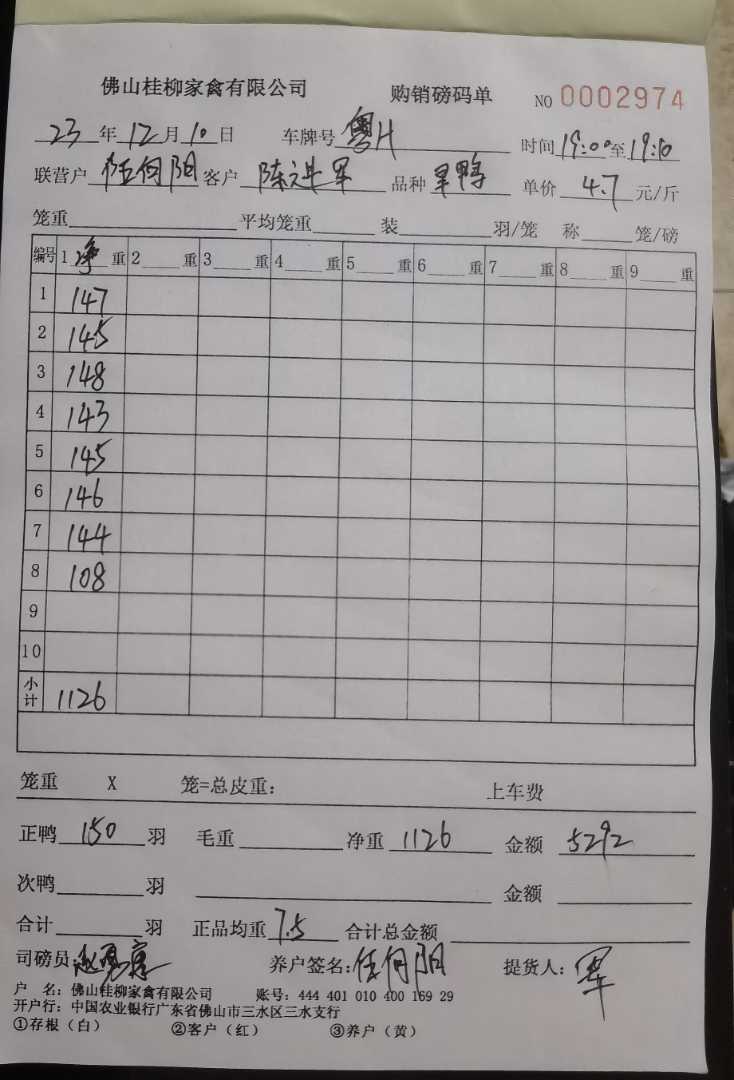 佛山桂柳家禽有限公司 购销磅码单 NO 0002974
23年12月10日 车牌号 粤H 时间 19:00至19:10
联营户 伍何阳 客户 陈进军 品种 旱鸭 单价 4.7 元/斤
笼重 平均笼重 装 羽/笼 称 笼/磅
编号 1 净 重 2 重 3 重 4 重 5 重 6 重 7 重 8 重 9 重
1 147
2 145
3 148
4 143
5 145
6 146
7 144
8 108
9
10
小计 1126
笼重 X 笼=总皮重: 上车费
正鸭 150 羽 毛重 净重 1126 金额 5292
次鸭 羽 金额
合计 羽 正品均重 7.5 合计总金额
司磅员: 养户签名: 伍何阳 提货人: 军
户 名: 佛山桂柳家禽有限公司 账号: 444 401 010 400 169 29
开户行: 中国农业银行广东省佛山市三水区三水支行
①存根(白) ②客户(红) ③养户(黄)